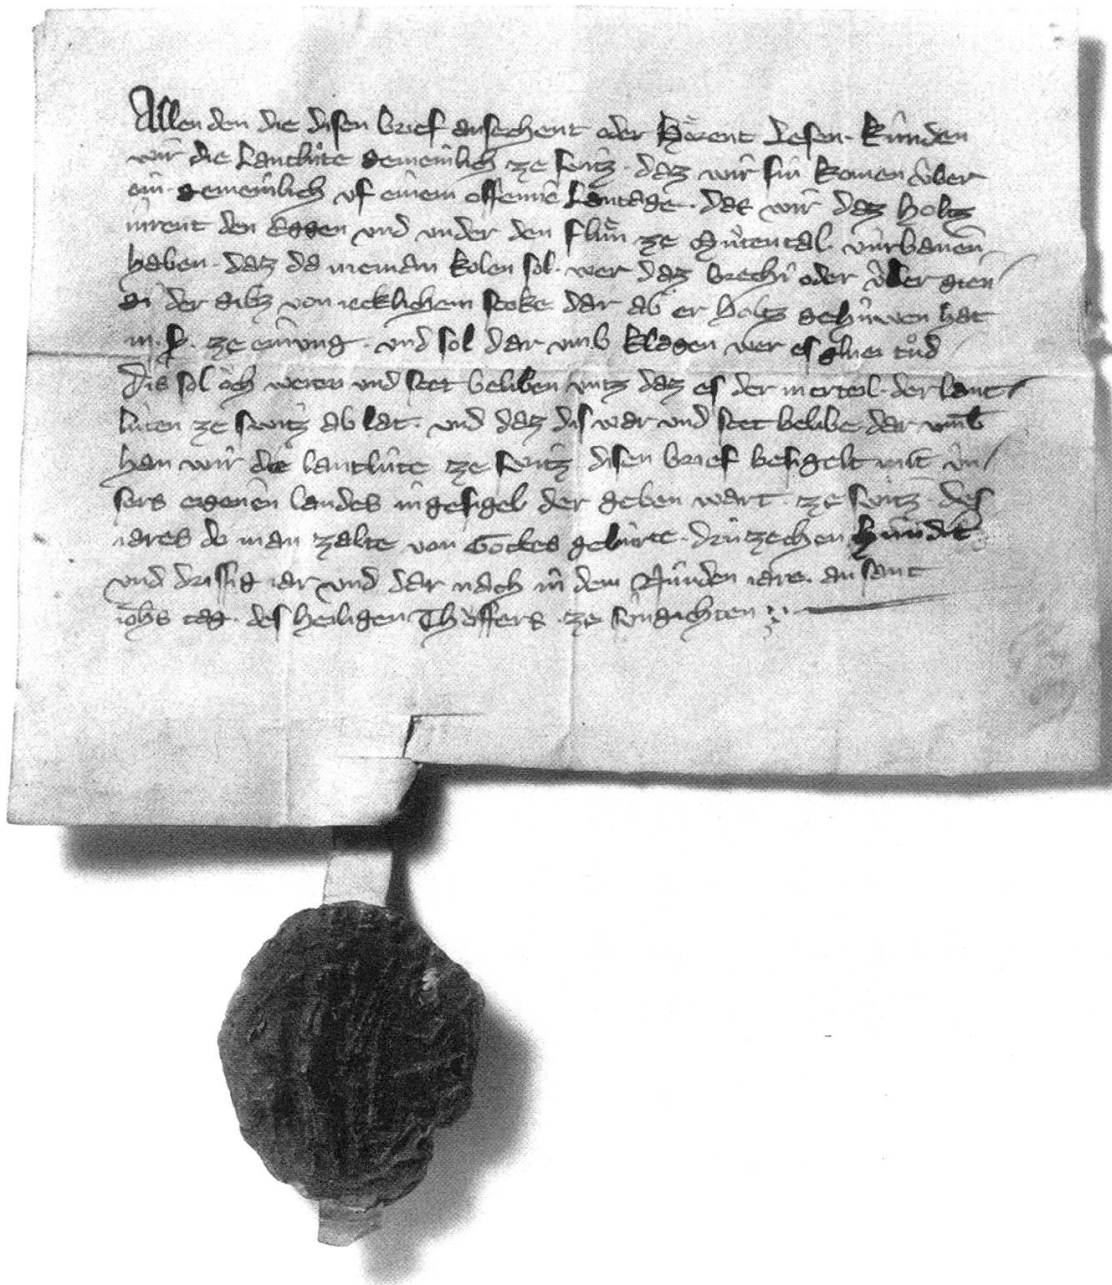 Allen den die disen brief ansechent oder hörent lesen · künden
wir die Lantlüte gemeinlich ze switz · daz wir sin komen über
ein · gemeinlich uf einem offenne Lantage · das wir daz holtz
inrent den Eggen und under den flün ze Mütental · vurbanen
haben · daz da nieman kolen sol · wer daz brechi oder über gien
gi der gibt von iecklichem stoke dar ab er holtz gehüwen hat
ze einung · und sol dar umb klagen wer es tůd
Dis sol och weren und stet beliben untz daz es der merteil · der lant
lüten ze switz ab lat · und daz dis war und stet belibe dar umb
han wir die lantlüte ze switz disen brief besigelt mit ün
sers eigenen landes ingesigel der geben wart ze switz · des
iares do man zalte von Gottes gebürte · drützechen hundert
und drissig iar und dar nach in dem Nünden iare · an sant
iohs tag · des heiligen Thöffers · ze süngichten